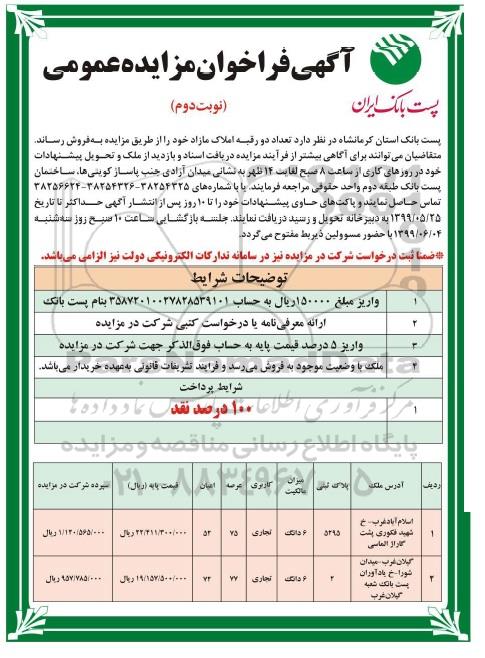 آگهی فراخوان مزایده عمومی
پست بانک ایران
(نوبت دوم)
پست بانک استان کرمانشاه در نظر دارد تعداد دو رقبه املاک مازاد خود را از طریق مزایده به‌فروش رساند.
متقاضیان می‌توانند برای آگاهی بیشتر از فرآیند مزایده دریافت اسناد و بازدید از ملک و تحویل پیشنهادات
خود در روزهای کاری از ساعت ۸ صبح لغایت ۱۴ ظهر به نشانی میدان آزادی جنب پاساژ کویتی‌ها، ساختمان
پست بانک طبقه دوم واحد حقوقی مراجعه فرمایند. یا با شماره‌های ۳۸۲۵۴۳۲۵-۳۸۲۵۴۳۲۶-۳۸۲۵۶۶۲۴
تماس حاصل نمایند و پاکت‌های حاوی پیشنهادات خود را تا ۱۰ روز پس از انتشار آگهی حداکثر تا تاریخ
۱۳۹۹/۰۵/۲۵ به دبیرخانه تحویل و رسید دریافت نمایند. جلسه بازگشایی ساعت ۱۰ صبح روز سه‌شنبه
۱۳۹۹/۰۶/۰۴ با حضور مسوولین ذیربط مفتوح می‌گردد.
*ضمنا ثبت درخواست شرکت در مزایده نیز در سامانه تدارکات الکترونیکی دولت نیز الزامی می‌باشد.
توضیحات شرایط
۱ واریز مبلغ ۱۵۰۰۰۰ ریال به حساب ۳۵۸۷۲۰۱۰۰۲۷۸۲۸۵۳۹۱۰۱ بنام پست بانک
۲ ارائه معرفی‌نامه یا درخواست کتبی شرکت در مزایده
۳ واریز ۵ درصد قیمت پایه به حساب فوق‌الذکر جهت شرکت در مزایده
۴ ملک با وضعیت موجود به فروش می‌رسد و فرایند تشریفات قانونی به‌عهده خریدار می‌باشد.
شرایط پرداخت
۱ ۱۰۰ درصد نقد
مرکز فرآوری اطلاعات پارس نماد داده ها
پایگاه اطلاع رسانی مناقصه و مزایده
۰۲۱-۸۸۳۴۹۶۷۰-۵
ردیف آدرس ملک پلاک ثبتی میزان مالکیت کاربری عرصه اعیان قیمت پایه (ریال) سپرده شرکت در مزایده
۱ اسلام‌آبادغرب- خ شهید فکوری پشت گاراژ الماسی ۵۲۹۵ ۶ دانگ تجاری ۷۵ ۵۲ ۲۲/۴۱۱/۳۰۰/۰۰۰ ریال ۱/۱۲۰/۵۶۵/۰۰۰ ریال
۲ گیلان‌غرب-میدان شورا-خ یادآوران پست بانک شعبه گیلان‌غرب ۲ ۶ دانگ تجاری ۷۷ ۷۲ ۱۹/۱۵۷/۵۰۰/۰۰۰ ریال ۹۵۷/۷۸۵/۰۰۰ ریال